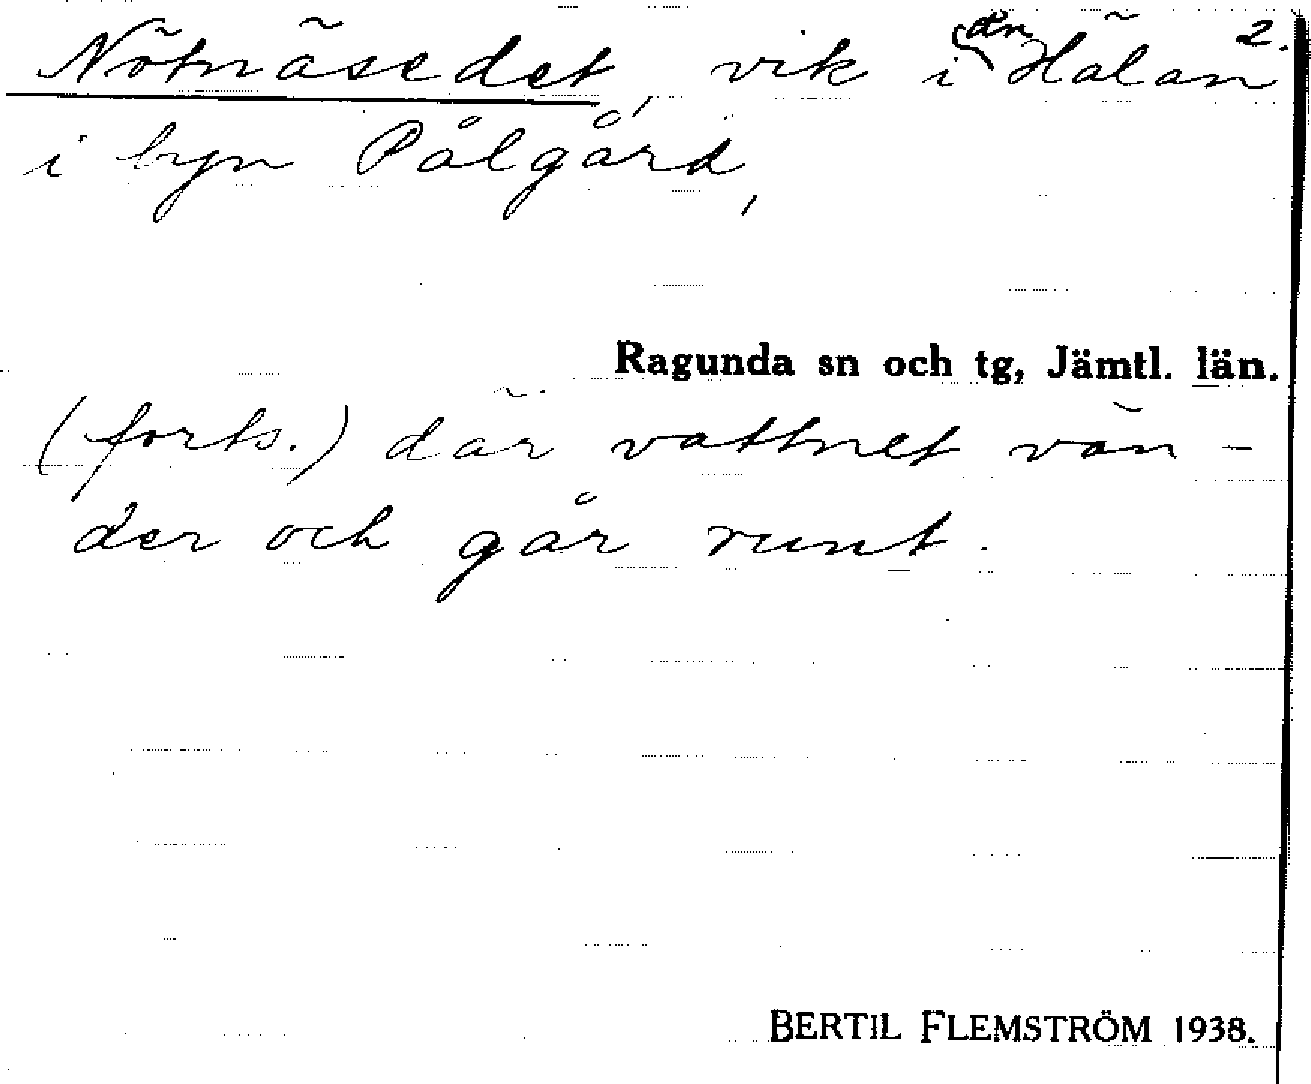 2.
Nötnäsedet, vik i ån Hälan
i byn Pålgård,
Ragunda sn och tg, Jämtl. län.
(forts.) där vattnet vän-
der och går runt.
BERTIL FLEMSTRÖM 1938.